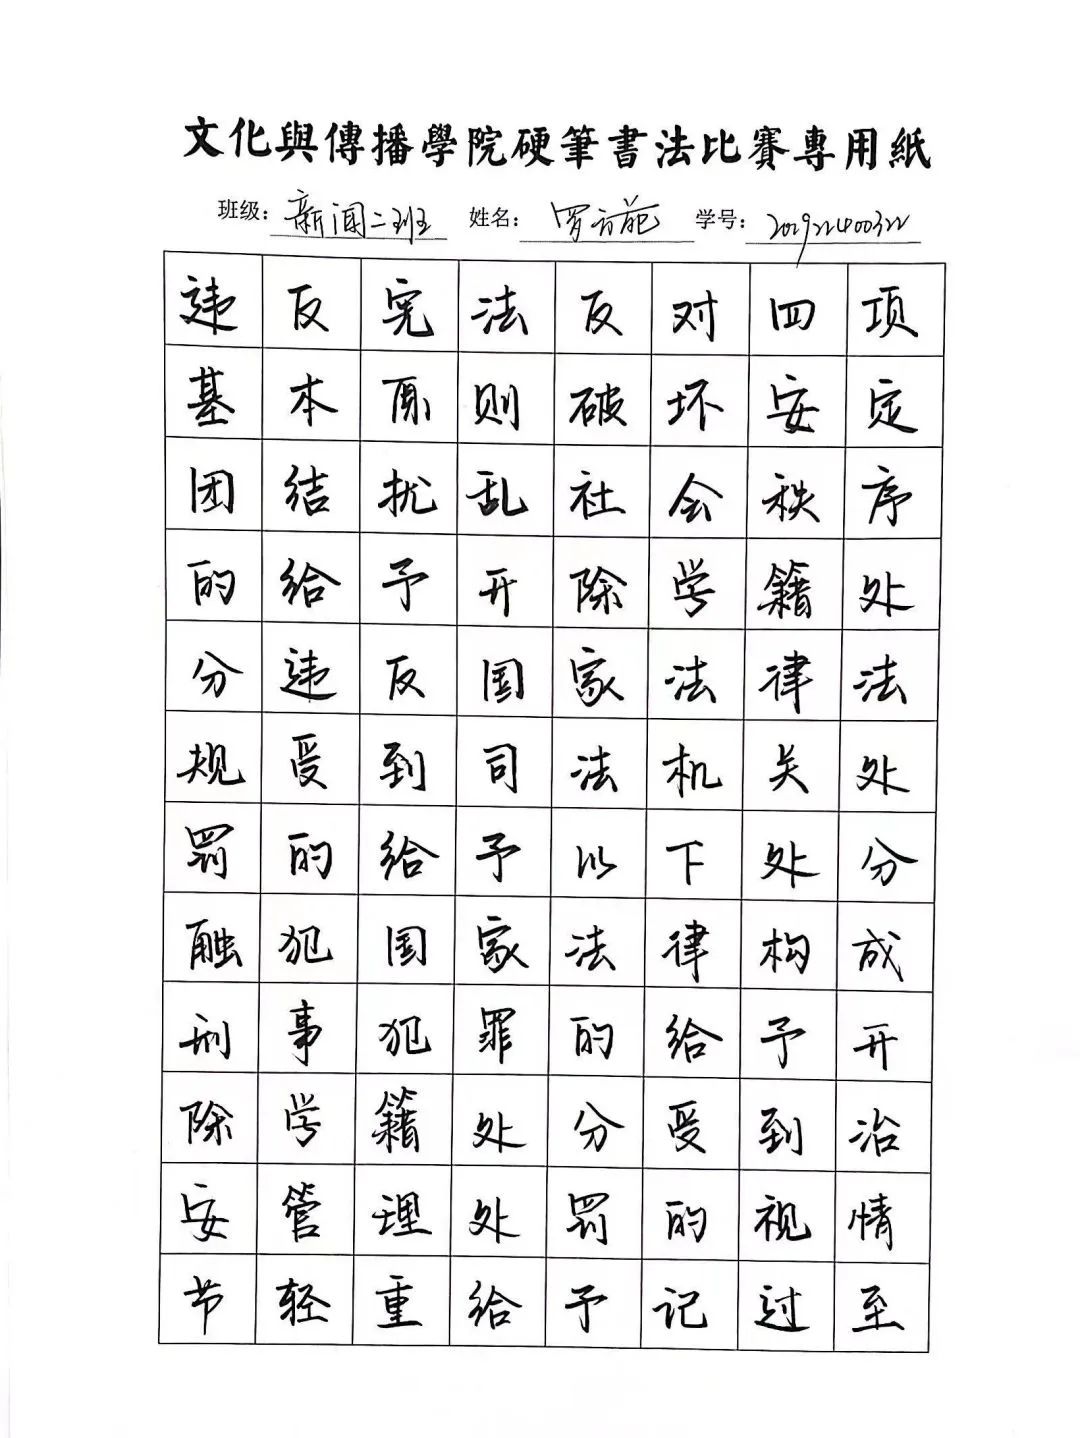 文化與傳播學院硬筆書法比賽專用紙
班级：新闻二班 姓名：罗方苑 学号：201922400322
违反宪法反对四项
基本原则破坏安定
团结扰乱社会秩序
的给予开除学籍处
分违反国家法律法
规受到司法机关处
罚的给予以下处分
触犯国家法律构成
刑事犯罪的给予开
除学籍处分受到治
安管理处罚的视情
节轻重给予记过至